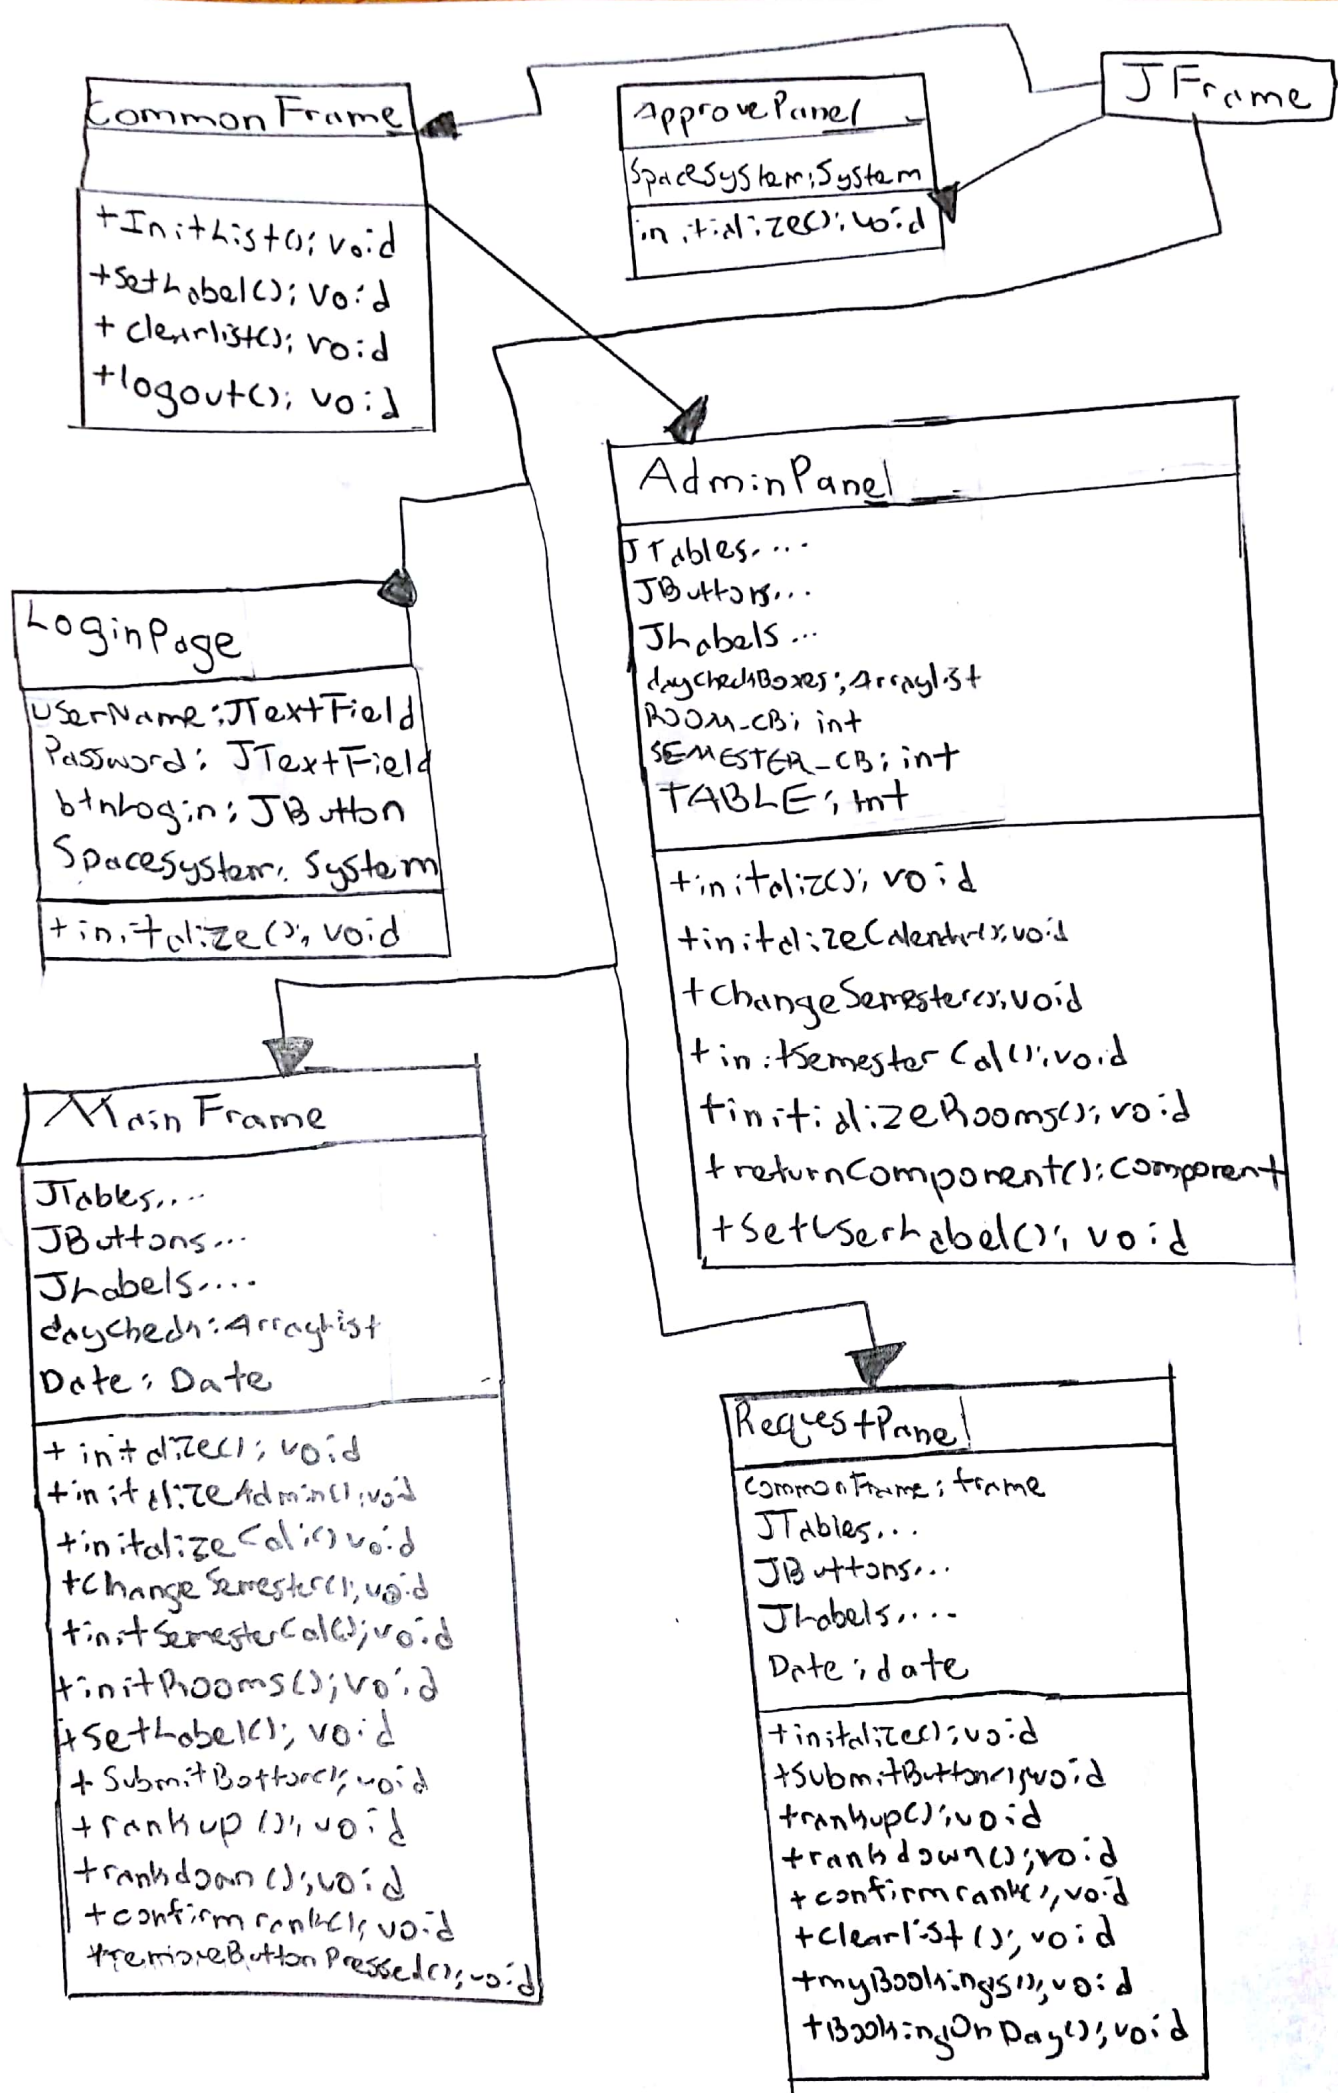 JFrame
CommonFrame
+InitList(): void
+SetLabel(): void
+clearlist(): void
+logout(): void
ApprovePanel
SpaceSystem: System
initialize(): void
AdminPanel
JTables....
JButtons...
JLabels...
dayCheckBoxes: Arraylist
ROOM_CB: int
SEMESTER_CB: int
TABLE: int
+initalize(): void
+initalizeCalendar(): void
+ChangeSemester(): void
+initSemesterCal(): void
+initializeRooms(): void
+returnComponent(): Component
+SetUserLabel(): void
LoginPage
UserName: JTextField
Password: JTextField
btnLogin: JButton
SpaceSystem: System
+initalize(): void
MainFrame
JTables....
JButtons...
JLabels....
dayCheck: ArrayList
Date: Date
+initalize(): void
+initalizeAdmin(): void
+initalizeCal(): void
+ChangeSemester(): void
+initSemesterCal(): void
+initRooms(): void
+SetLabel(): void
+SubmitButton(): void
+rankup(): void
+rankdown(): void
+confirmrank(): void
+removeButtonPressed(): void
RequestPanel
CommonFrame: frame
JTables...
JButtons...
JLabels....
Date: date
+initalize(): void
+SubmitButton(): void
+rankup(): void
+rankdown(): void
+confirmrank(): void
+clearlist(): void
+myBookings(): void
+BookingOnDay(): void